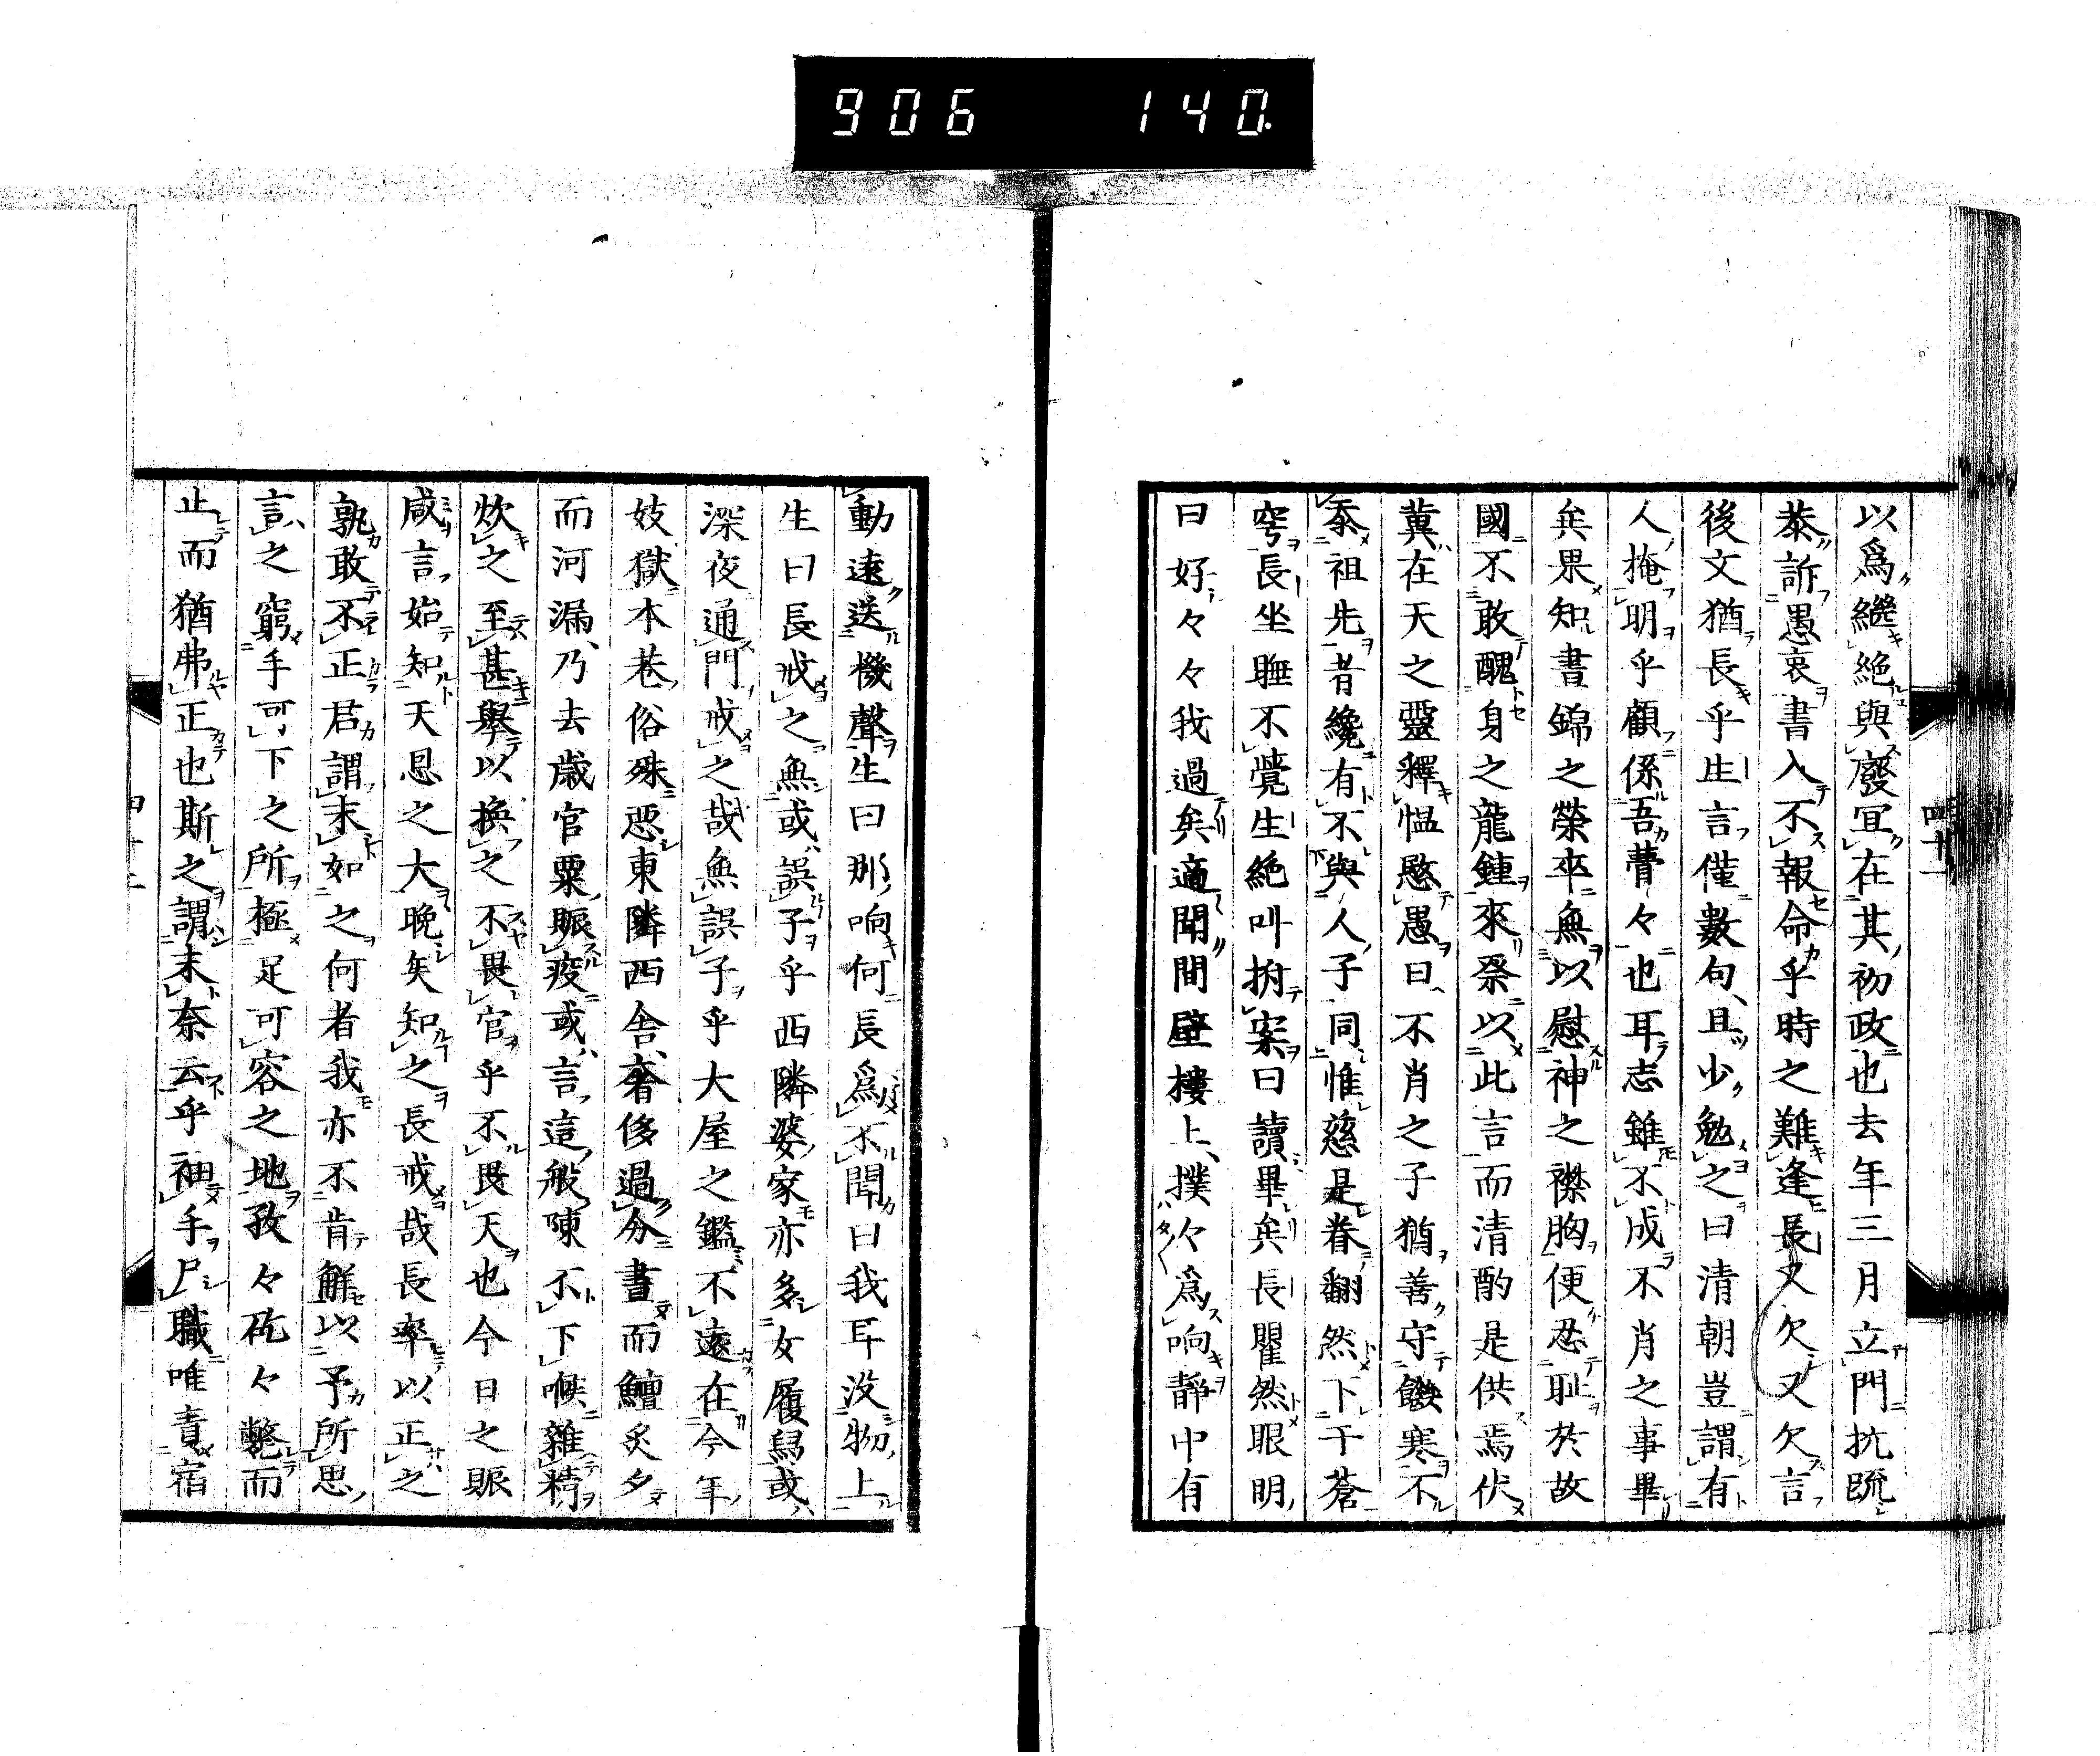 906 140
以爲繼絕與廢宜在其初政也去年三月立門抗䟽
忝訴愚哀書入不報命乎時之難逢長又欠又欠言
後文猶長乎生言僅數句且少勉之曰清朝豈謂有
人掩明乎顧係吾瞢々也耳志雖不成不肖之事畢
矣果知書錦之榮卒無以慰神之襟胸便忍耻於故
國不敢醜身之龍鍾來祭以此言而清酌是供焉伏
冀在天之靈釋慍愍愚曰不肖之子猶善守餓寒不
忝祖先者纔有不與人子同惟慈是眷翻然下于蒼
穹長坐睡不覺生絕叫拊案曰讀畢矣長瞿然眼明
曰好々々我過矣適聞間壁樓上撲々爲响靜中有
四十一
動遠送機聲生曰那响何長爲不聞曰我耳没物上
生曰長戒之無或誤子乎西隣婆家亦多女履舄或
深夜通門戒之哉無誤子乎大屋之鑑不遠在今年
妓獄本巷俗殊惡東隣西舍奢侈過分晝而鱣炙夕
而河漏乃去歲官粟賑疫或言這般陳不下喉雜精
炊之至甚與以換之不畏官乎不畏天也今日之賑
咸言始知天恩之大晚矣知之長戒哉長率以正之
孰敢不正君謂末如之何者我亦不肯解以予所思
言之窮手可下之所極足可容之地孜々矻々斃而
止而猶弗正也斯之謂末奈云乎袖手尸職唯責宿